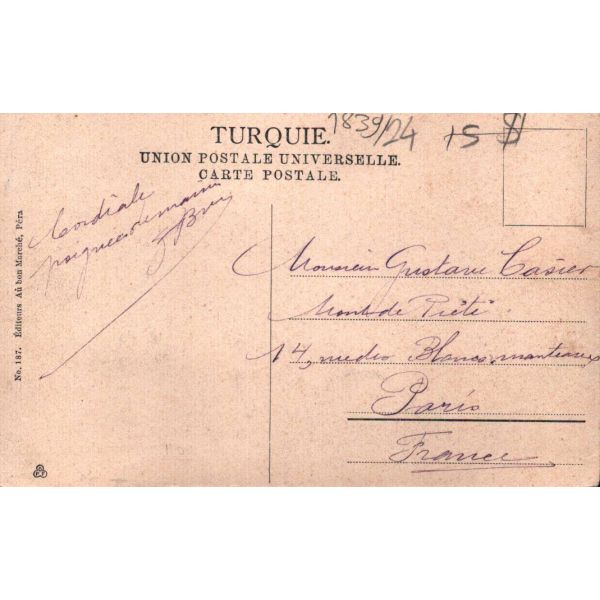 1839/24 15 $
TURQUIE.
UNION POSTALE UNIVERSELLE.
CARTE POSTALE.
Cordiale
poignée de main
Monsieur Gustave Casier
Mont de Piété
14, rue des Blancs manteaux
Paris
France
No. 187. Éditeurs Au bon Marché, Péra